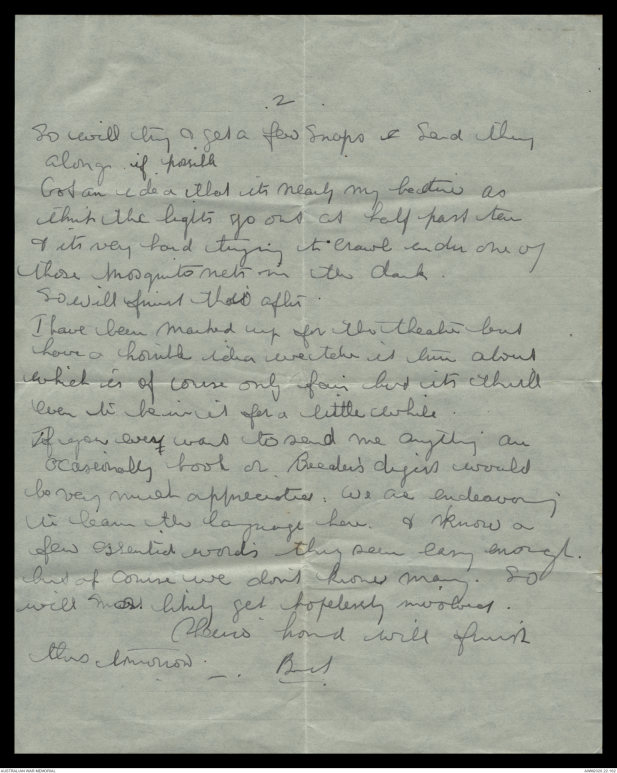 2
So will try & get a few snaps & send them
along if possible
Got an idea that its nearly my bedtime as
the lights go out at half past ten
& its very hard trying to crawl under one of
those mosquito nets in the dark.
So will finish this after.
I have been marked up for the theatre but
have a horrible idea we take it turn about
which is of course only fair but its thrill
even to be in it for a little while.
If you ever want to send me anything an
ocasionally book or Readers digest would
be very much appreciated. We are endeavoring
to learn the language here. I know a
few essential words they seem easy enough.
but of course we don't know many. So
will most likely get hopelessly involved.
Cheerio will finish
this tomorrow.
AUSTRALIAN WAR MEMORIAL